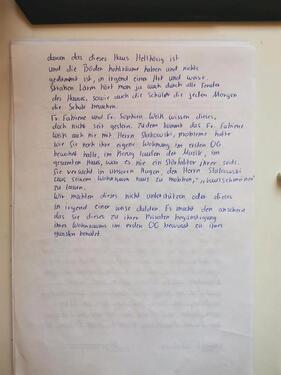 daran das dieses Haus Hellhörig ist
und die Böden hohlräume haben und nichts
gedämmt ist, in irgend einer Art und weise.
Straßen Lärm hört man ja auch durch alle Fenster
des Hauses, sowie auch die Schüler die jeden Morgen
die Schule besuchen.
Fr. und Fr. Sophia Weiß wissen dieses,
doch nicht seit gestern. Zudem kommt das Fr.
Weiß auch nie mit Herrn probleme hatte
wie Sie noch ihre eigene Wohnung im ersten OG
bewohnt hatte, im bezug lauten der Musik, im
gesamten Haus, war Es nie ein Störfaktor ihrer seits.
Sie versucht in unseren Augen, den Herrn
aus seinem Wohnraum raus zu mobben,
zu lassen.
Wir möchten dieses nicht unterstützen oder dieses
in irgend einer weise dulden. Es macht den anschein
das Sie dieses zu ihrer Privaten begünstigung
ihres Wohnraums im ersten OG bewusst zu ihrer
gunsten behält.